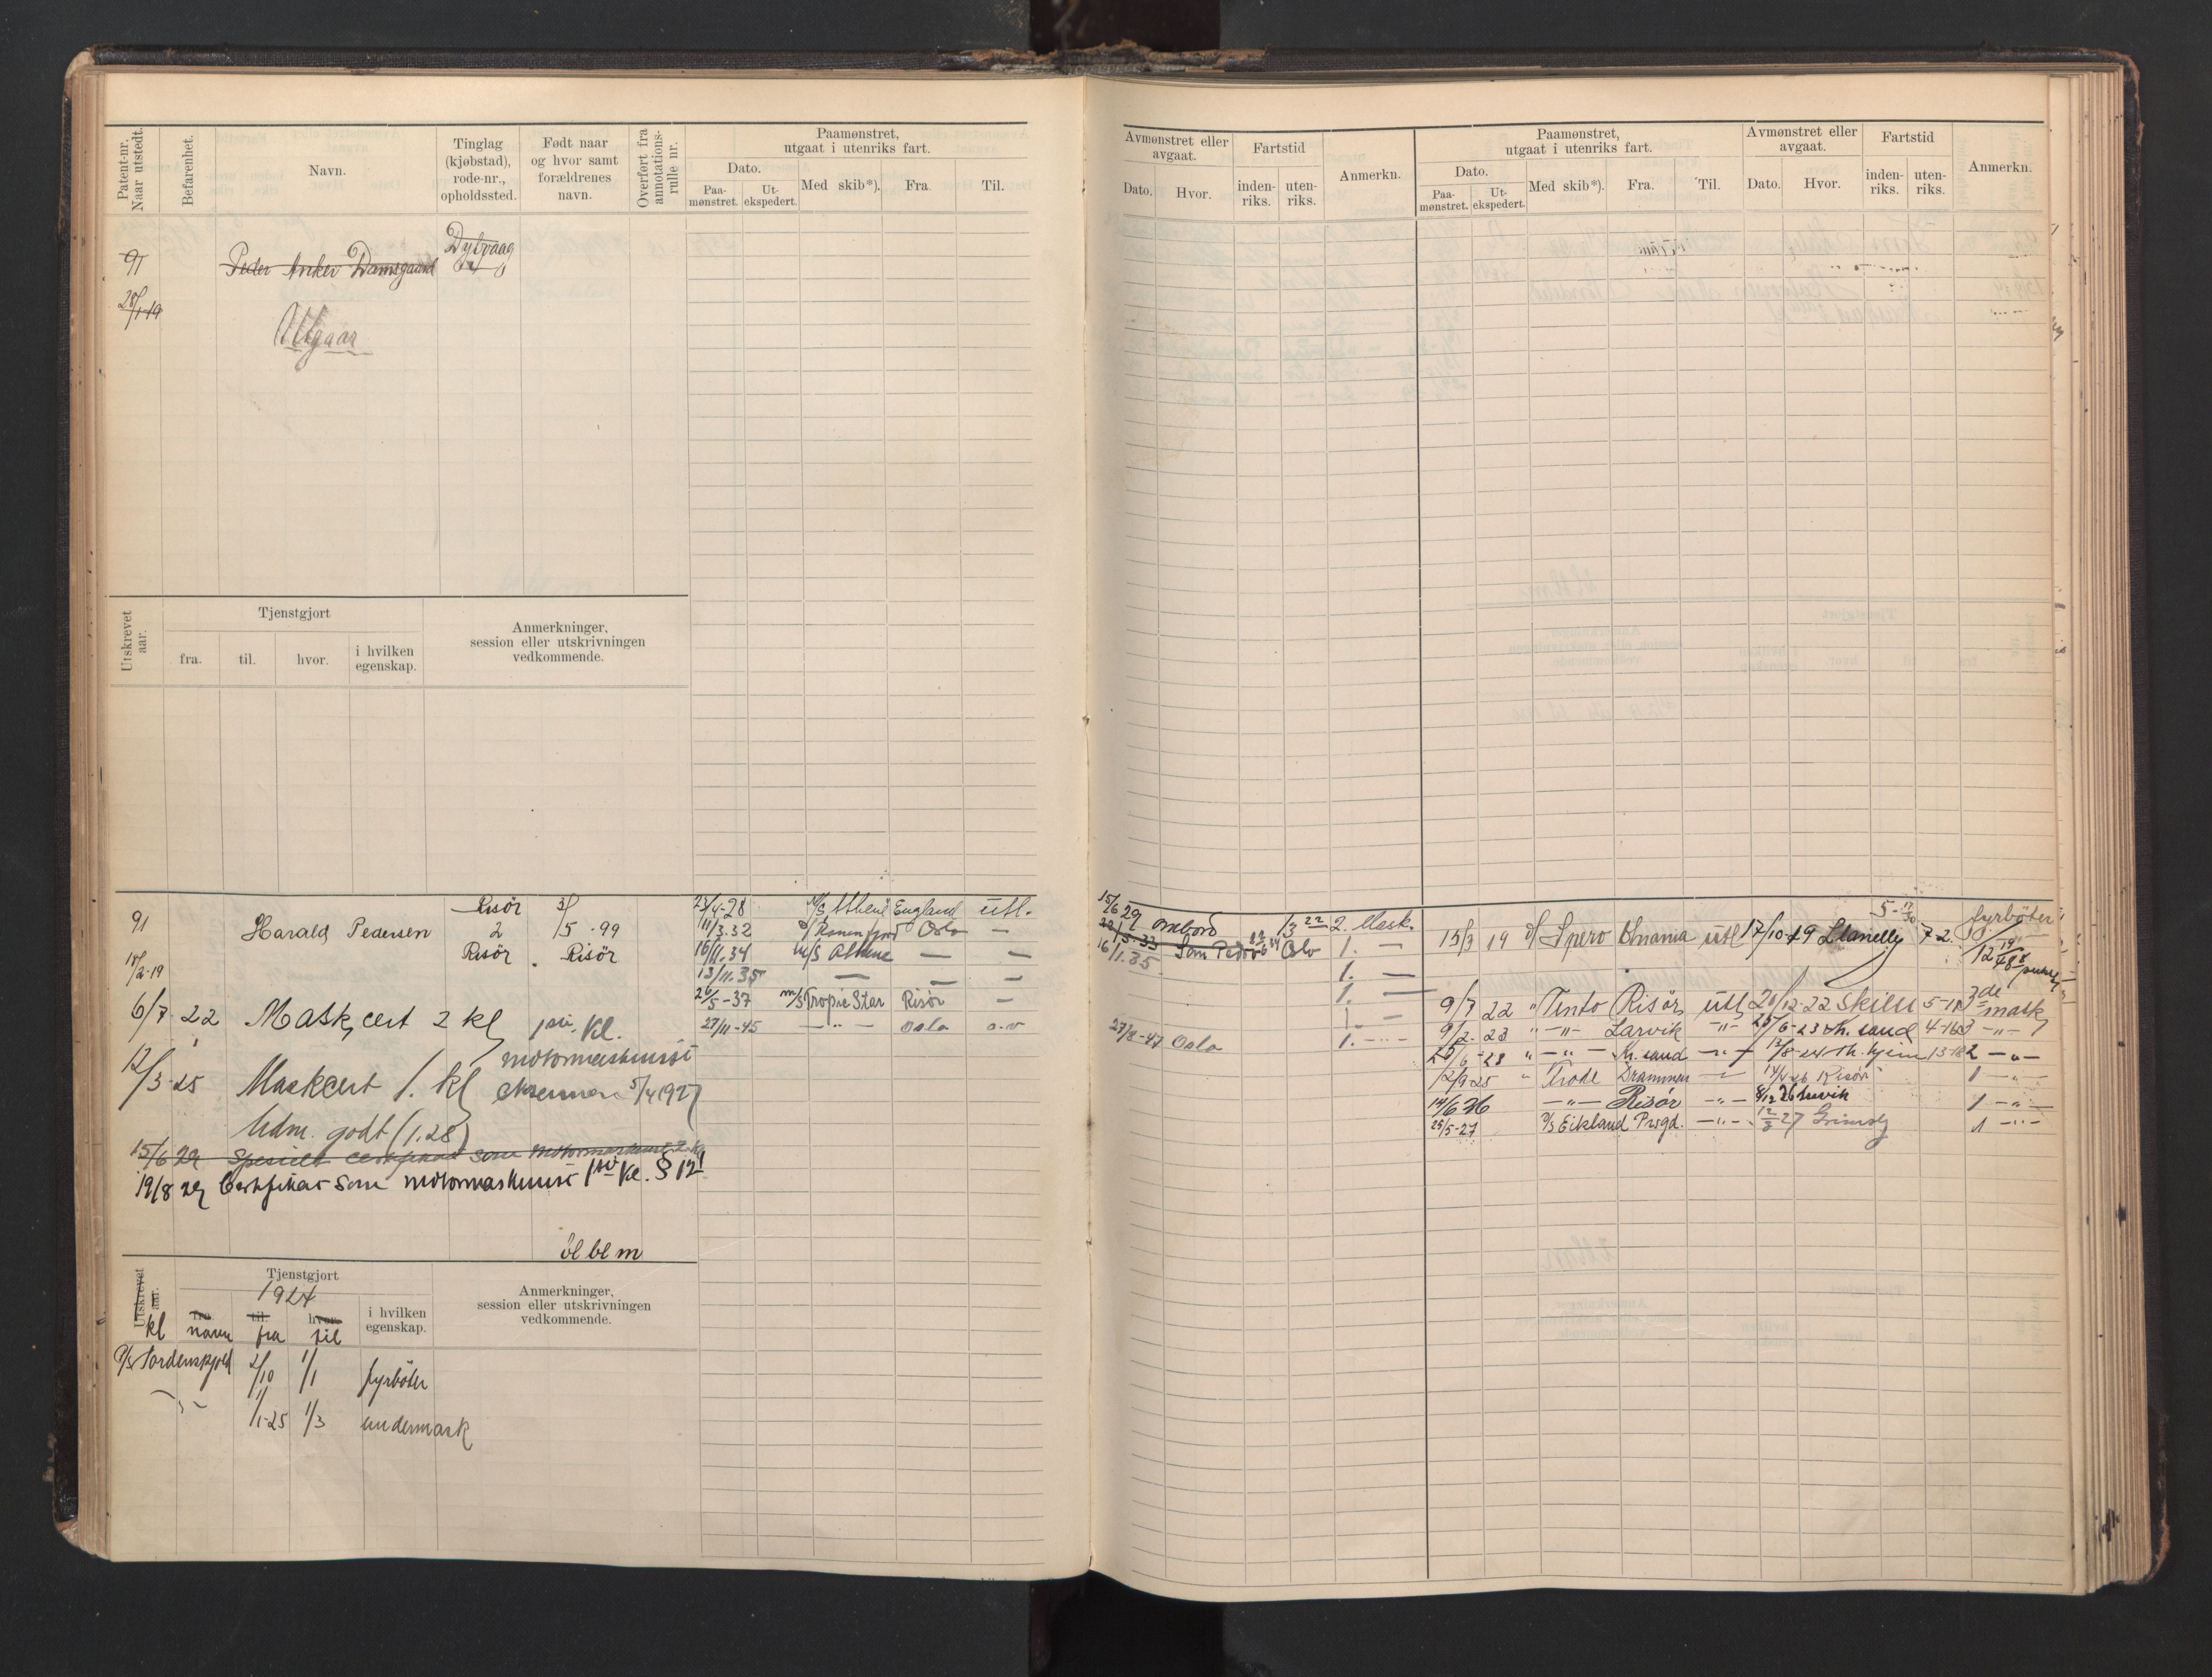 Patent-nr. Naar utstedt.
Befarenhet.
Navn.
Tinglag (kjøbstad), rode-nr., opholdssted.
Født naar og hvor samt forældrenes navn.
Overført fra annotations-rulle nr.
Paamønstret, utgaat i utenriks fart.
Dato.
Paa-mønstret.
Ut-ekspedert.
Med skib*).
Fra.
Til.
91
Peder Anker Damsgaard
Dybvaag
28/1-19
Utgaar
Utskrevet aar.
Tjenstgjort
fra.
til.
hvor.
i hvilken egenskap.
Anmerkninger, session eller utskrivningen vedkommende.
91
Harald Pedersen
Risör
2
Risör
3/5-99
Risör
18/2-19
6/7 22 Mask, cert 2 kl
12/3-25 Maskcert 1. kl
motormaskinist
eksamen 5/4 1927
Udm. godt (1.28)
15/6 29 Spesielt certifikat som motormaskinist 2 kl
19/8 29 Certifikat som motormaskinist 1ste kl. § 12
23/4-28 M/S Athene England utl.
11/3.32 Oslo —
16/11.34 M/S Athene — —
13/11.35 — — —
26/5-37 m/s Tropic Star Risör —
27/11-45 —"— Oslo
öl bl m
Utskrevet aar.
Tjenstgjort
1924
i hvilken egenskap.
Anmerkninger, session eller utskrivningen vedkommende.
kl navn fra til
Tordenskjold 2/10 1/1 fyrböter
1/1-25 1/3 undermask
Avmønstret eller avgaat.
Fartstid
Anmerkn.
Dato.
Hvor.
inden-riks.
uten-riks.
Paamønstret, utgaat i utenriks fart.
Dato.
Paa-mønstret.
Ut-ekspedert.
Med skib*).
Fra.
Til.
Avmønstret eller avgaat.
Dato.
Hvor.
Fartstid
inden-riks.
uten-riks.
Anmerkn.
15/6 29 ombord 2. Mask.
San Pedro Oslo 1. —
16/1.35 1. —
1. —
1. —
27/8-47 Oslo 1. —
15/3 19 Spero utl 17/10-19 Llanelly 7-2. fyrböter
9/7 22 " Tento Risör utl 20/12-22 Skien 3de mask
9/2-23 " —"— Larvik —"— 25/6-23 Kr. sand
25/6-23 " —"— Kr. sand —"— 13/8-24 Th.hjem 2 —"—
12/9-25 " Drammen Risör 1 —"—
14/6 26 —"— Risör —"— 1 —"—
25/5-27 D/S Eikland Prsgd. —"— Grimsby 1 —"—